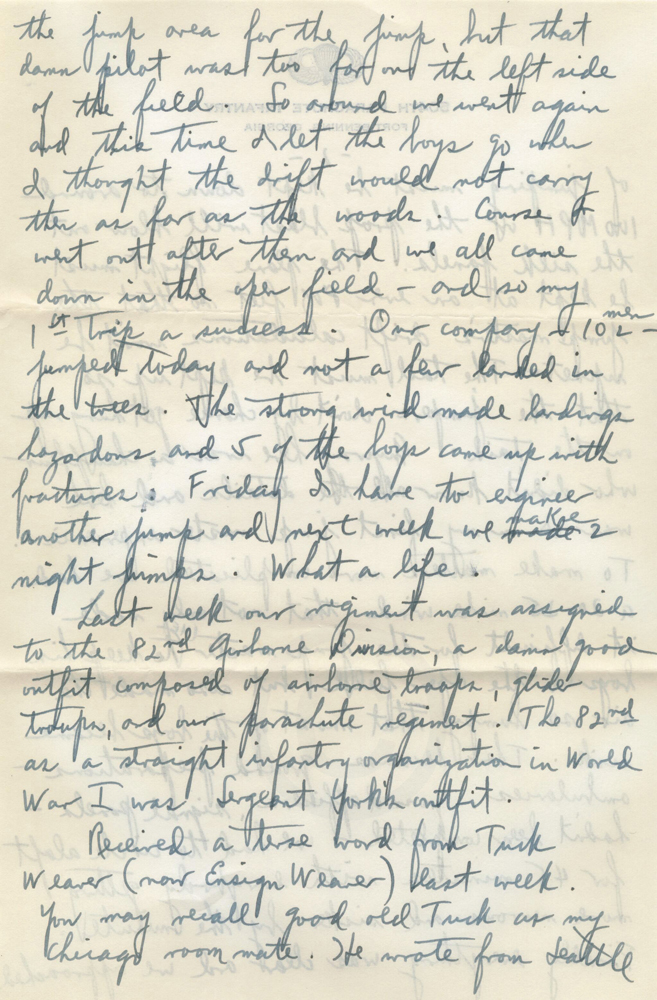 the jump area for the jump, but that
damn pilot was too far over the left side
of the field. So around we went again
and this time I let the boys go when
I thought the drift would not carry
them as far as the woods. Course I
went out after them and we all came
down in the open field – and so my
1st trip a success. Our company – 102 men –
jumped today and not a few landed in
the trees. The strong wind made landings
hazardous, and 5 of the boys came up with
fractures. Friday I have to engineer
another jump and next week we made make 2
night jumps. What a life.
Last week our regiment was assigned
to the 82nd Airborne Division, a damn good
outfit composed of airborne troops, glider
troops, and our parachute regiment. The 82nd
as a straight infantry organization in World
War I was Sergeant York's outfit.
Received a terse word from Tuck
Weaver (now Ensign Weaver) last week.
You may recall good old Tuck as my
Chicago room mate. He wrote from Seattle